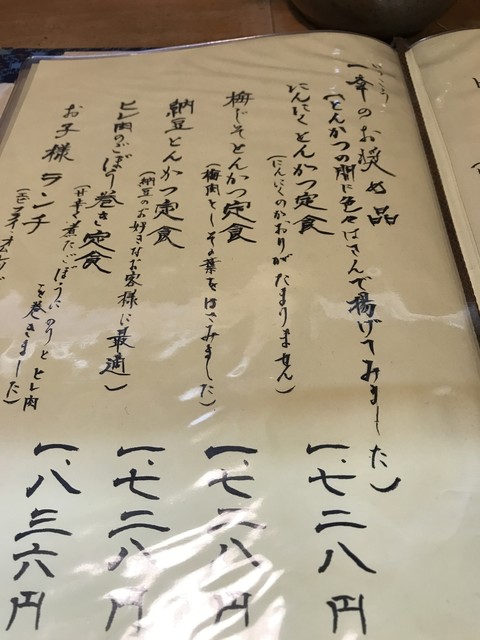 いっこう
一幸のお奨め品
(とんかつの間に色々はさんで揚げてみました)
にんにくとんかつ定食
(にんにくのかおりがたまりません)
一、七二八円
梅じそとんかつ定食
(梅肉としその葉をはさみました)
一、七二八円
納豆とんかつ定食
(納豆のお好きなお客様に最適)
一、七二八円
ヒレ肉のごぼう巻き定食
(甘辛く煮たごぼうにのりとヒレ肉
を巻きました)
一、八三六円
お子様ランチ